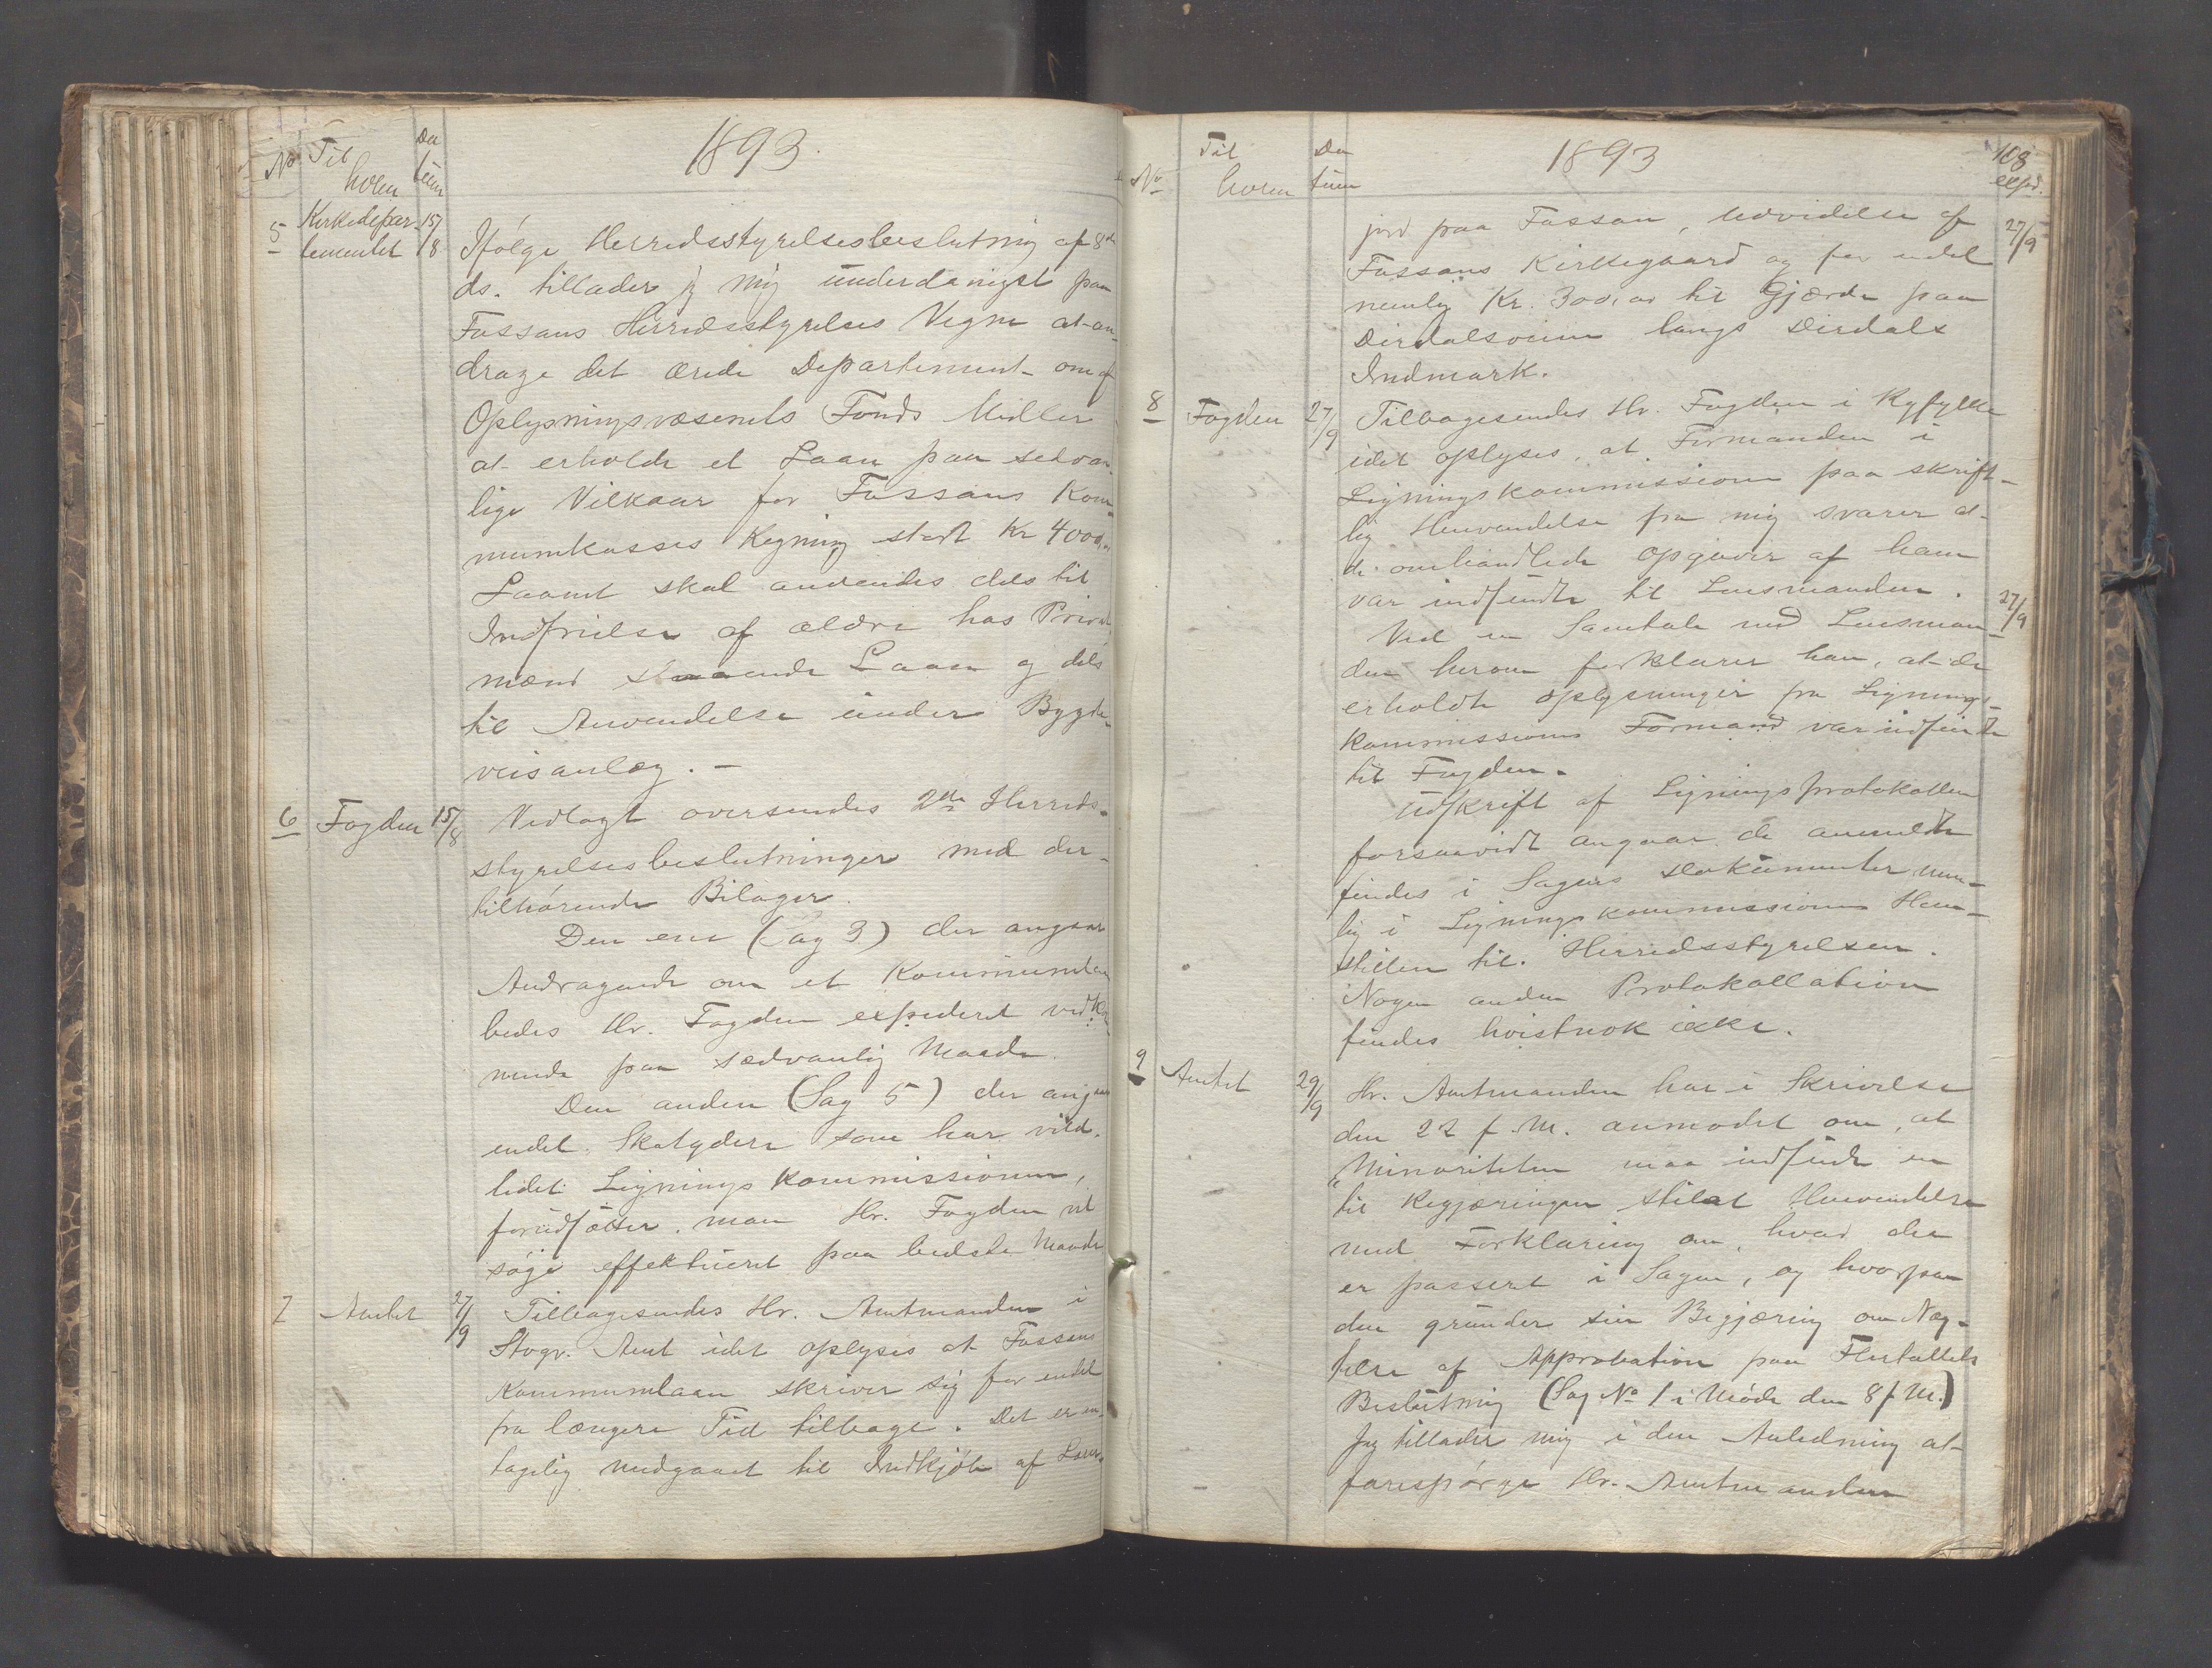 1893.
No Til hvem Datum
5 Kirkedepartementet 15/8
Ifølge Herredsstyrelsesbeslutning af 8de
ds. tillader jeg mig underdanigst paa
Fossans Herredsstyrelses Vegne at an-
drage det ærede Departement om af
Oplysningsvæsenets Fonds Midler
at erholde et Laan paa sedvan-
lige Vilkaar for Fossans Kom-
munekasses Regning stort Kr 4000,00
Laanet skal anvendes dels til
Indfrielse af ældre hos Privat-
mænd staaende Laan og dels
til Anvendelse under Bygde-
veisanlæg. –
6 Fogden 15/8
Vedlagt oversendes 2de Herreds-
styrelsesbeslutninger med der-
tilhørende Bilager.
Den ene (Sag 3) der angaar
Andragende om et Kommunelaan
bedes Hr. Fogden expederet vedkom-
mende paa sædvanlig Maade.
Den anden (Sag 5) der angaar
endel Skatydere som har vild-
ledet Ligningskommissionen,
forudsætter man Hr. Fogden vil
søge effektueret paa bedste Maade
7 Amtet 27/9
Tilbagesendes Hr. Amtmanden i
Stvgr. Amt idet oplyses at Fossans
Kommunelaan skriver sig for endel
fra længere Tid tilbage. Det er an-
tagelig medgaaet til Indkjøb af
1893
108
No Til hvem Datum
exped.
jord paa Fossan, Udvidelse af
27/9
Fossans Kirkegaard og for endel
nemlig Kr. 300,00 til Gjærde paa
Dirdalsveien langs Dirdals
Indmark.
8 Fogden 27/9
Tilbagesendes Hr. Fogden i Ryfylke
idet oplyses, at Formanden i
Ligningskommissionen paa skrift-
lig Henvendelse fra mig svarer at
de omhandlede Opgaver af ham
var indsendte til Lensmanden.
27/9
Ved en Samtale med Lensman-
den herom forklarer han, at de
erholdte Oplysninger fra Lignings-
kommissionens Formand var indsendte
til Fogden.
Udskrift af Ligningsprotokollen
forsaavidt angaar de anmeldte
findes i Sagens Dokumenter nem-
lig i Ligningskommissionens Hen-
stillen til Herredsstyrelsen.
Nogen anden Protokollation
findes hvistnok ikke.
9 Amtet 29/9
Hr. Amtmanden har i Skrivelse
den 22 f. M. anmodet om, at
"Minoriteten maa indsende en
til Regjæringen stilet Henvendelse
med Forklaring om, hvad der
er passeret i Sagen, og hvorpaa
den grunder sin Begjæring om Næg-
telse af Approbation paa Flertallets
Beslutning (Sag No 1 i Møde den 8 f. M.)
Jeg tillader mig i den Anledning at
forespørge Hr. Amtmanden